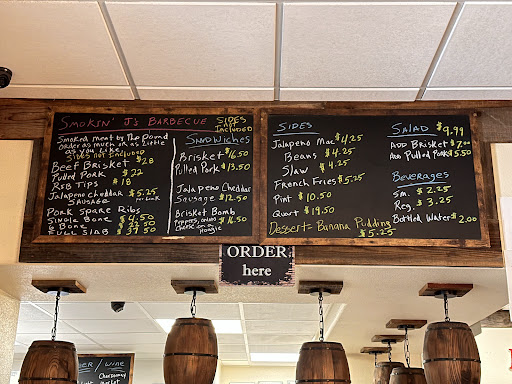 SMOKIN' J'S BARBECUE
SIDES
NOT
INCLUDED
Smoked meat by The Pound
Order as much or as little
as you like
SIDES NOT INCLUDED
Beef Brisket $28
Pulled Pork $22
Rib Tips $18
Jalapeno Cheddar $5.25
Sausage
Pork Spare Ribs
Single Bone
6 Bone
Full Slab
SANDWICHES
Brisket $16.50
Pulled Pork $13.50
Jalapeno Cheddar
Sausage $12.50
Brisket Bomb
Peppers, onions
Cheese on a
Hoagie
SIDES
Jalapeno Mac $4.25
Beans $4.25
Slaw $4.25
French Fries $5.25
Pint $10.50
Quart $19.50
Dessert = Banana Pudding
$5.25
SALAD $9.99
ADD Brisket $7.00
ADD Pulled Pork $5.50
Beverages
Sm. $2.25
Reg. $3.25
Bottled Water $2.00
ORDER
here
WINE